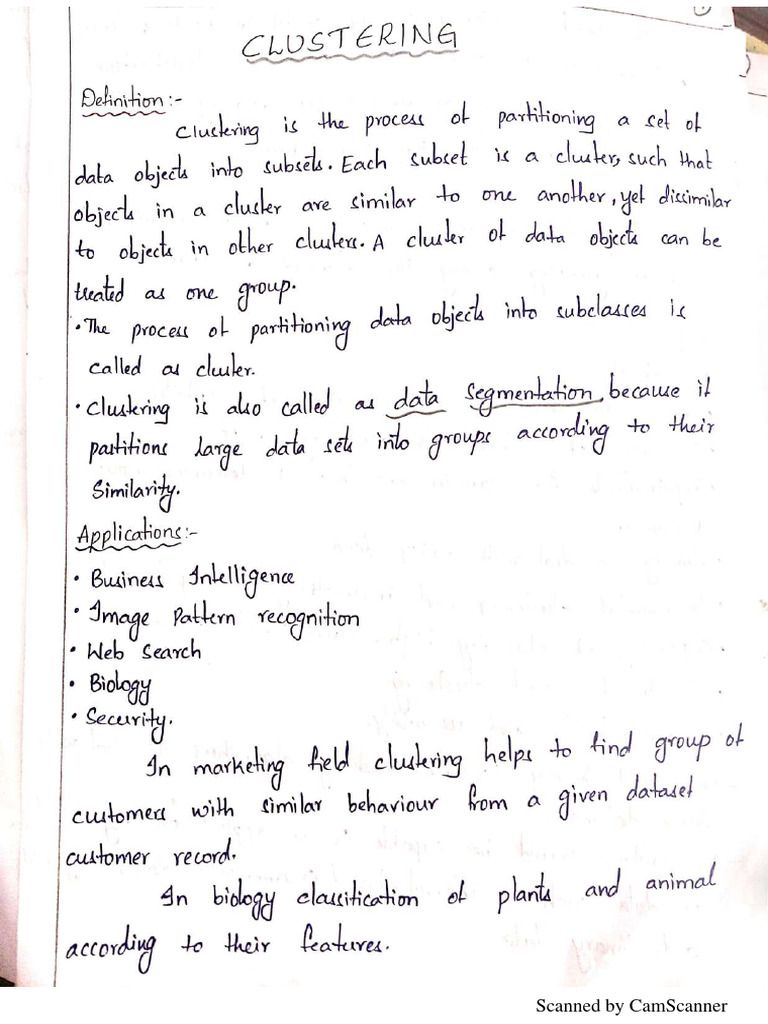 CLUSTERING
Definition:-
Clustering is the process of partitioning a set of
data objects into subsets. Each subset is a cluster, such that
objects in a cluster are similar to one another, yet dissimilar
to objects in other clusters. A cluster of data objects can be
treated as one group.
• The process of partitioning data objects into subclasses is
called as cluster.
• Clustering is also called as data segmentation, because it
partitions large data sets into groups according to their
Similarity.
Applications:-
• Business Intelligence
• Image Pattern recognition
• Web Search
• Biology
• Security.
In marketing field clustering helps to find group of
customers with similar behaviour from a given dataset
customer record.
In biology classification of plants and animal
according to their features.
Scanned by CamScanner